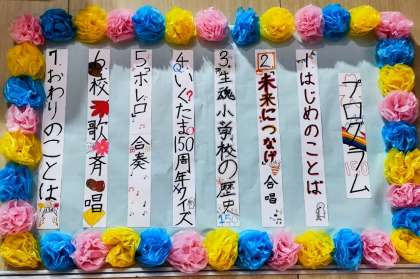 プログラム
1.はじめのことば
2.未来につなげ 合唱
3.生魂小学校の歴史
4.いくたま150周年クイズ
5.ボレロ 合奏
6.校歌斉唱
7.おわりのことば